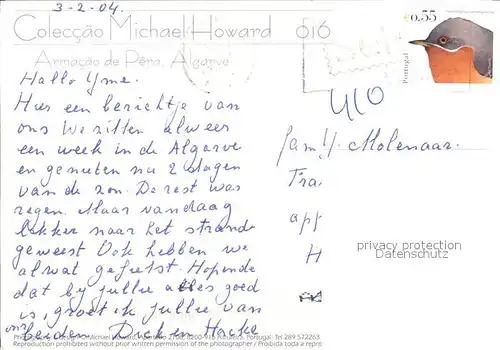 3-2-04.
Colecção Michael Howard 016
Armação de Pêra, Algarve
€0,55
Portugal
410
Hallo Yme.
Hier een berichtje van
ons We zitten alweer
een week in de Algarve
en genieten nu 2 dagen
van de zon. De rest was
regen. Maar vandaag
lekker naar het strand
geweest Ook hebben we
al wat gefietst. Hopende
dat bij jullie alles goed
is, groet ik jullie van
ons beiden. Dick en
fam. Y. Molenaar.
Tra
app
H
privacy protection
Datenschutz
Michael Howard, Portugal. Tel 289 572263
Reproduction prohibited without prior written permission of the photographer / Proibida toda a repro